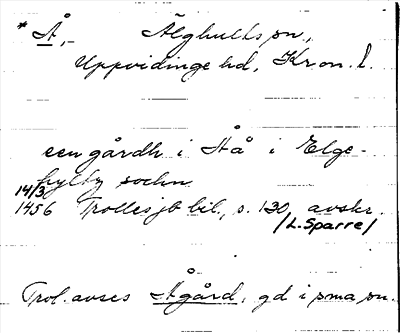 * Å, Älghults sn.,
Uppvidinge hd, Kron. l.
een gårdh i Aå i Elge-
hylty sochn
14/3
1456 Trolles jb bil., s. 130, avskr.
/L. Sparre/
Trol. avses Ågård, gd i sma sn.